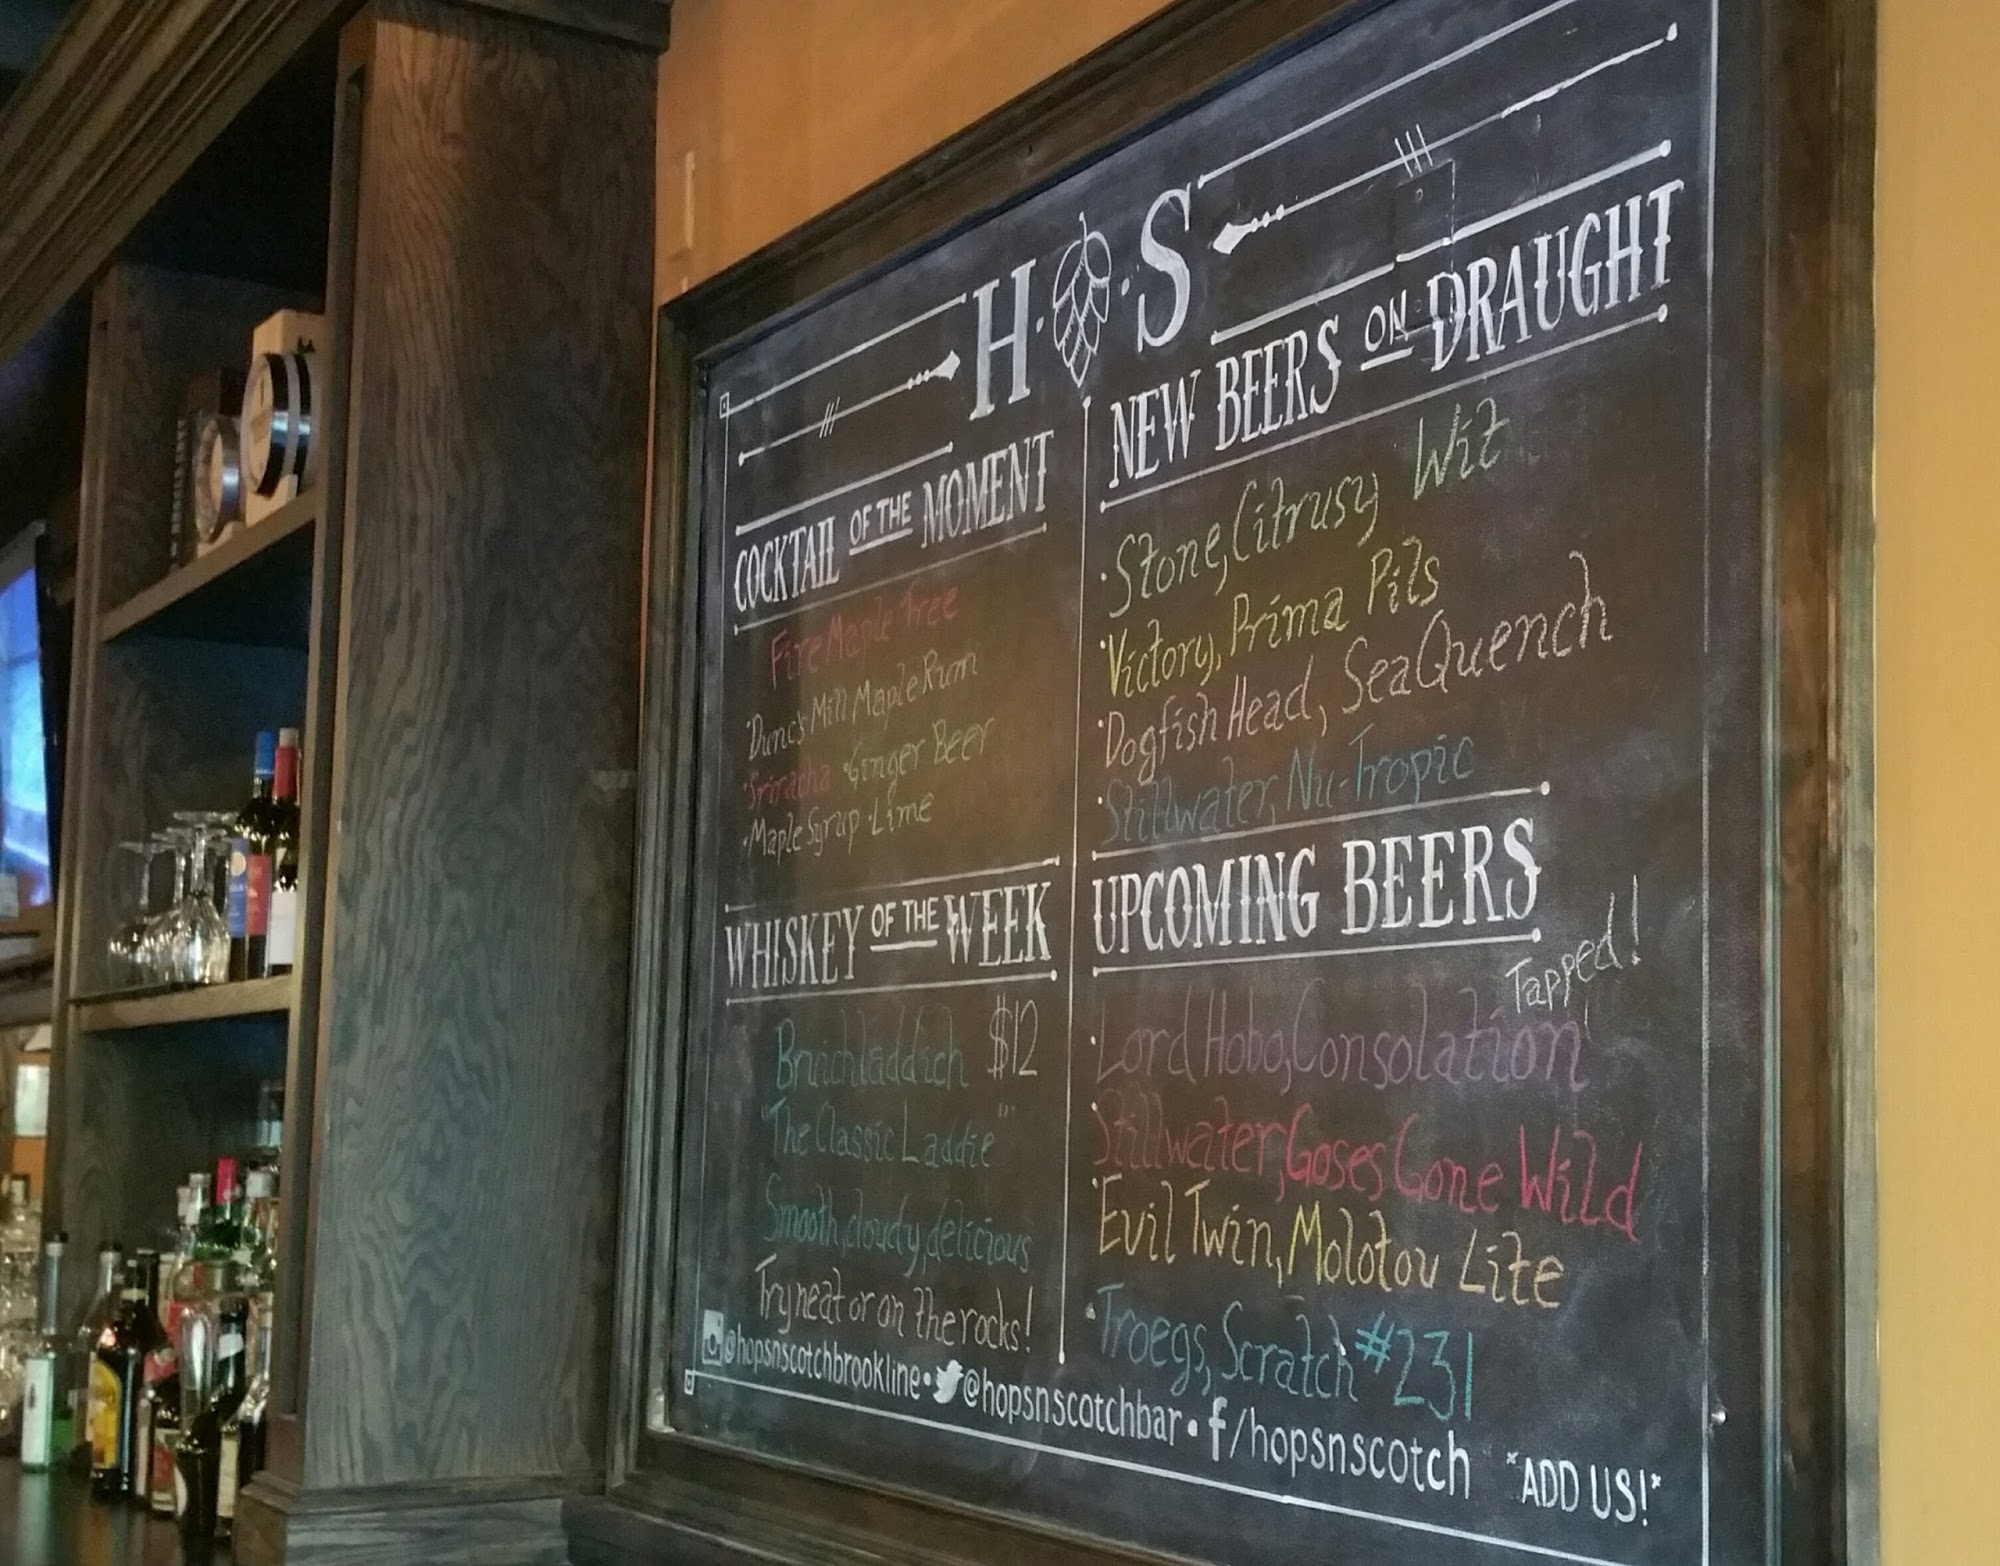 H · S
COCKTAIL OF THE MOMENT
Fire Maple Tree
· Dunc's Mill Maple Rum
· Sriracha · Ginger Beer
· Maple Syrup · Lime
WHISKEY OF THE WEEK
Bruichladdich $12
"The Classic Laddie"
Smooth, cloudy, delicious
Try neat or on the rocks!
NEW BEERS ON DRAUGHT
· Stone, Citrusy Wit
· Victory, Prima Pils
· Dogfish Head, SeaQuench
· Stillwater, Nu-Tropic
UPCOMING BEERS
Tapped!
· Lord Hobo, Consolation
· Stillwater, Goses Gone Wild
· Evil Twin, Molotov Lite
· Troegs, Scratch #231
@hopsnscotchbrookline · @hopsnscotchbar · f/hopsnscotch *ADD US!*